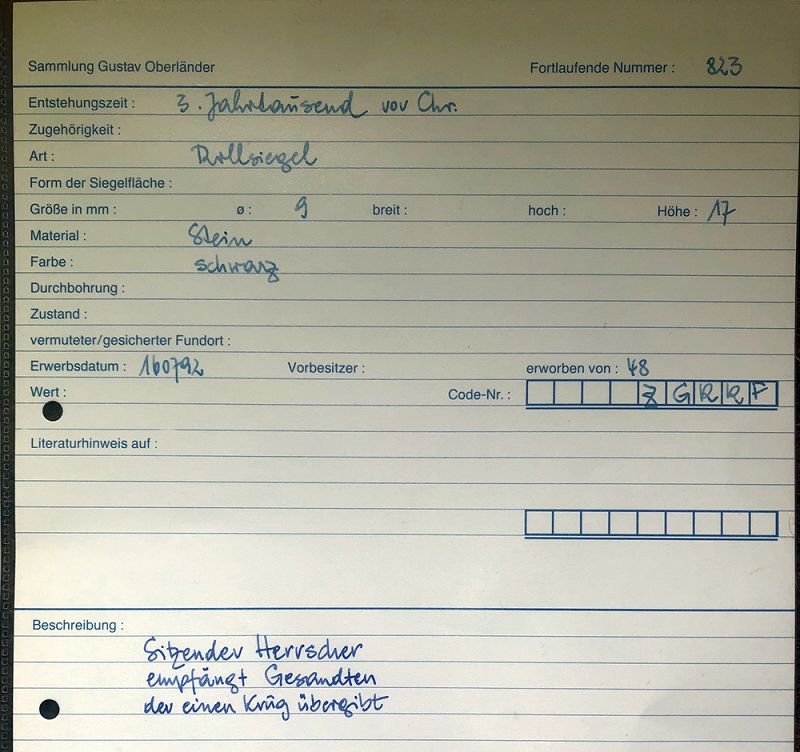 Sammlung Gustav Oberländer Fortlaufende Nummer : 823
Entstehungszeit : 3. Jahrtausend vor Chr.
Zugehörigkeit :
Art : Rollsiegel
Form der Siegelfläche :
Größe in mm : ø : 9 breit : hoch : Höhe : 17
Material : Stein
Farbe : schwarz
Durchbohrung :
Zustand :
vermuteter/gesicherter Fundort :
Erwerbsdatum : 160792 Vorbesitzer : erworben von : 48
Wert : Code-Nr. : Z G R R F
Literaturhinweis auf :
Beschreibung :
Sitzender Herrscher
empfängt Gesandten
der einen Krug übergibt